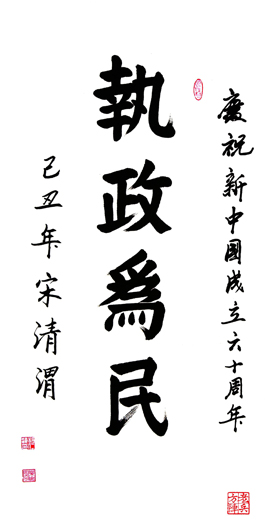 慶祝新中國成立六十周年
執政爲民
己丑年宋清渭